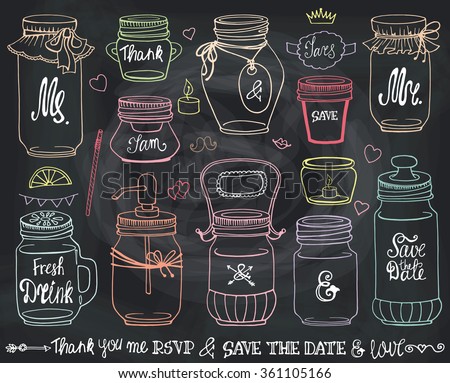 Thank
Jars
Ms.
&
Mr.
SAVE
Jam
Fresh
Drink
&
&
Save
the
Date
Thank you me RSVP & SAVE THE DATE & love
shutterstock
IMAGE ID: 361105166
www.shutterstock.com